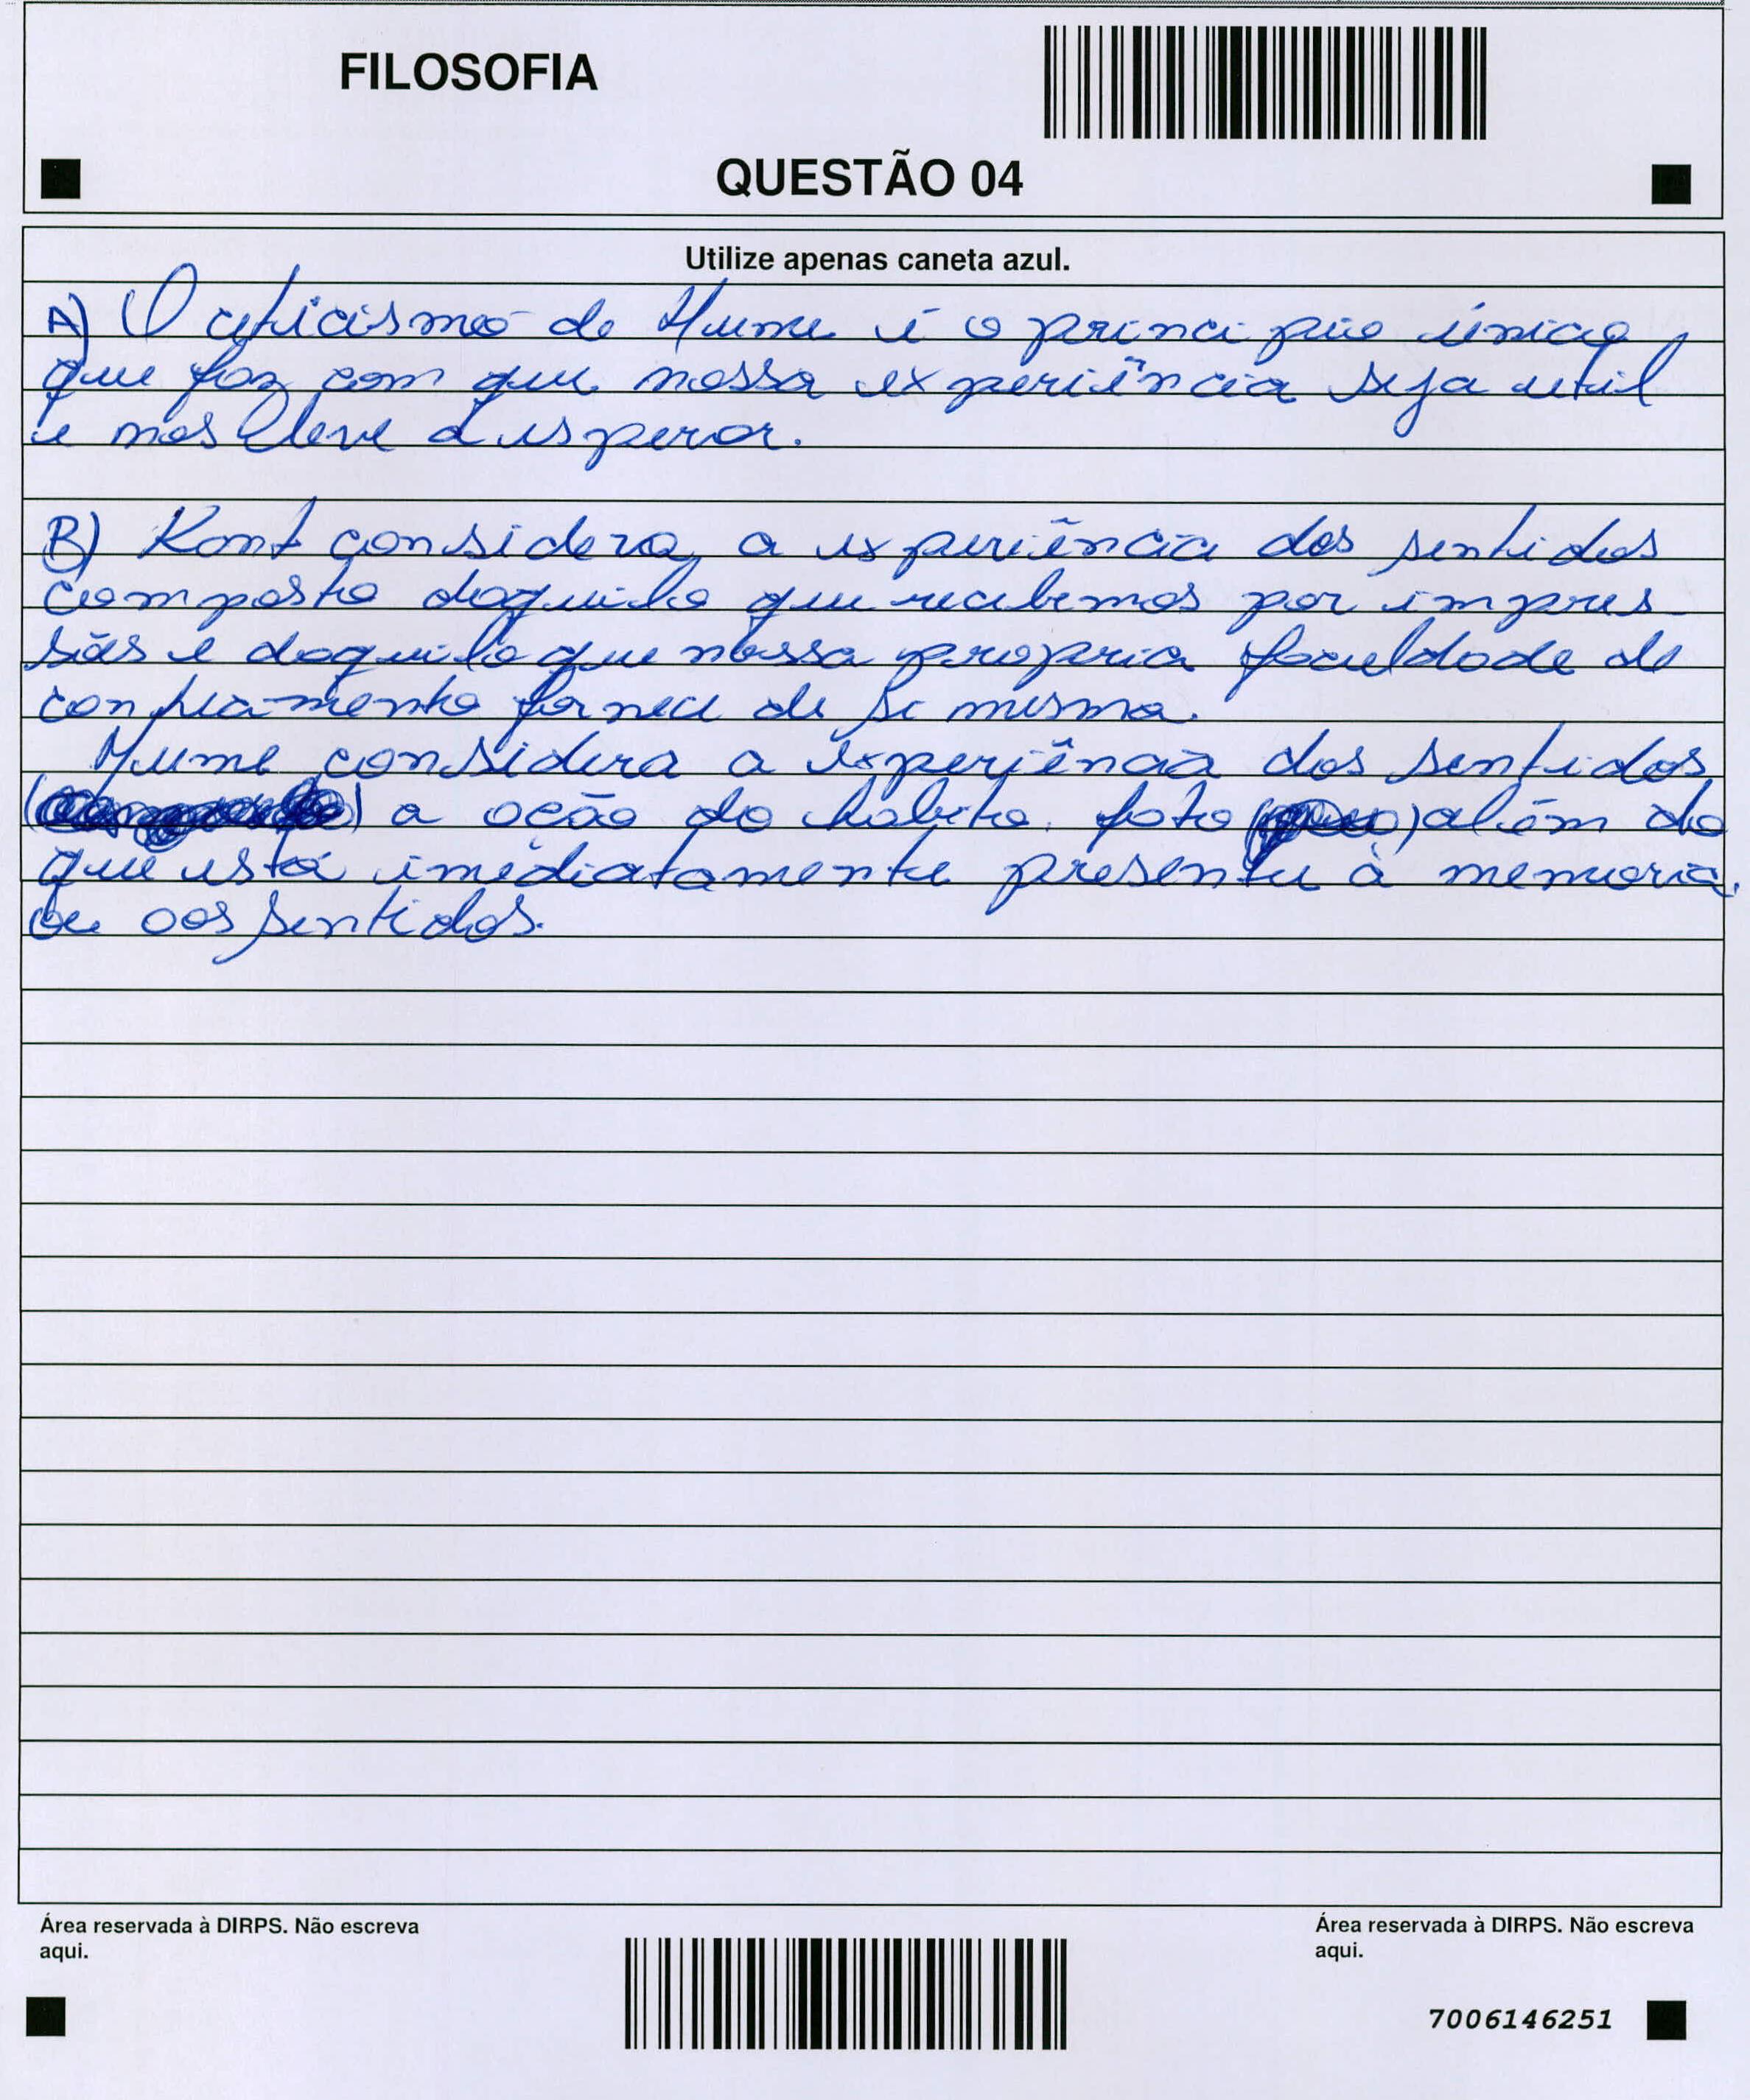 FILOSOFIA
QUESTÃO 04
Utilize apenas caneta azul.
A) O ceticismo de Hume é o principio único
que faz com que nossa experiência seja util
e nos leve a esperar.
B) Kant considera a experiência dos sentidos
composto daquilo que recebemos por impres-
sões e daquilo que nossa propria faculdade de
conhecimento fornece de si mesma.
Hume considera a experiência dos sentidos
a ação do habito. fato além do
que está imediatamente presente à memoria,
ou aos sentidos.
Área reservada à DIRPS. Não escreva
aqui.
Área reservada à DIRPS. Não escreva
aqui.
7006146251